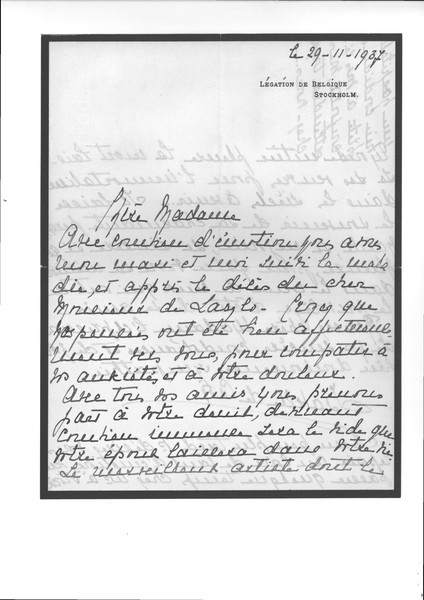 le 29-11-1937
LÉGATION DE BELGIQUE
STOCKHOLM.
Chère Madame
Avec combien d'émotion nous avons
mon mari et moi suivi la mala
die, et appris le décès du cher
Monsieur de Laszlo. Croyez que
nos pensées ont été bien affectueuse
ment vers vous, pour compatir à
vos anxiétés, et à votre douleur.
Avec tous vos amis nous prenons
part à votre deuil, devinant
combien immense sera le vide que
votre époux laissera dans votre vie.
Le merveilleux artiste dont le